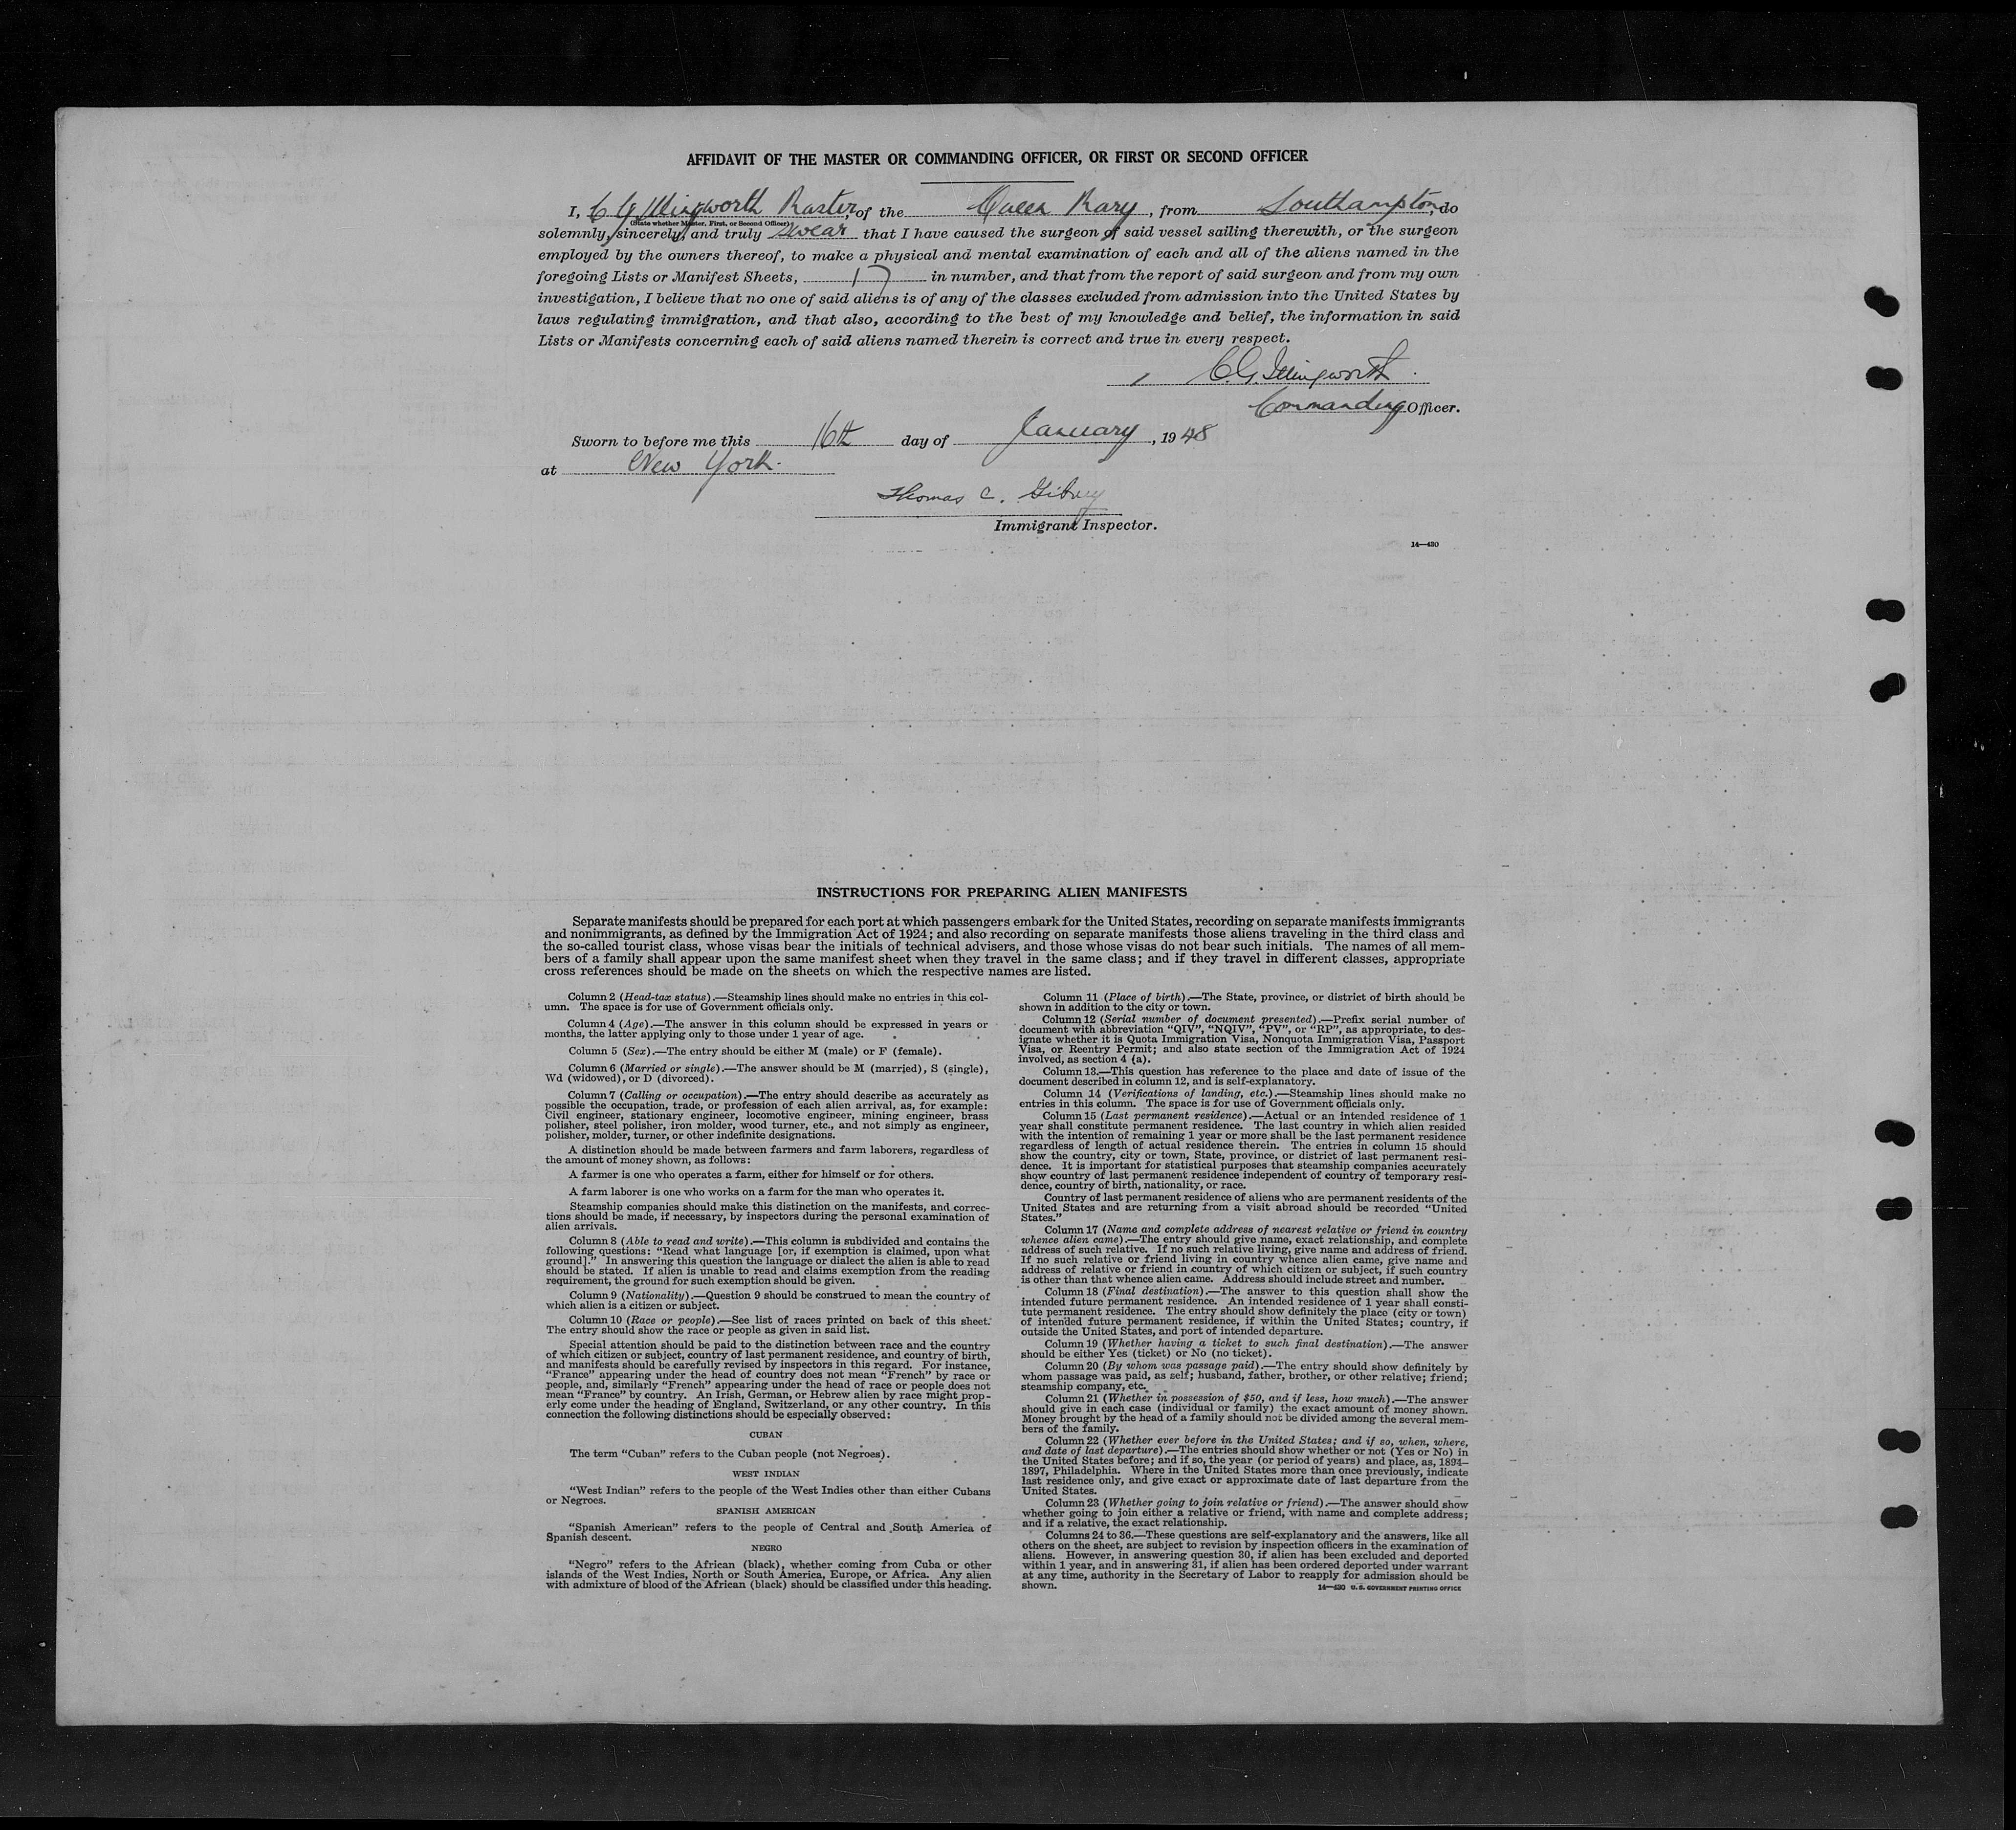 AFFIDAVIT OF THE MASTER OR COMMANDING OFFICER, OR FIRST OR SECOND OFFICER
I, C G Illingworth Master, of the Queen Mary, from Southampton, do
(State whether Master, First, or Second Officer)
solemnly, sincerely, and truly swear that I have caused the surgeon of said vessel sailing therewith, or the surgeon
employed by the owners thereof, to make a physical and mental examination of each and all of the aliens named in the
foregoing Lists or Manifest Sheets, 17 in number, and that from the report of said surgeon and from my own
investigation, I believe that no one of said aliens is of any of the classes excluded from admission into the United States by
laws regulating immigration, and that also, according to the best of my knowledge and belief, the information in said
Lists or Manifests concerning each of said aliens named therein is correct and true in every respect.
C. G. Illingworth
Commanding Officer.
Sworn to before me this 16th day of January, 1948
at New York.
Thomas C. Gibney
Immigrant Inspector.
14—430
INSTRUCTIONS FOR PREPARING ALIEN MANIFESTS
Separate manifests should be prepared for each port at which passengers embark for the United States, recording on separate manifests immigrants
and nonimmigrants, as defined by the Immigration Act of 1924; and also recording on separate manifests those aliens traveling in the third class and
the so-called tourist class, whose visas bear the initials of technical advisers, and those whose visas do not bear such initials. The names of all mem-
bers of a family shall appear upon the same manifest sheet when they travel in the same class; and if they travel in different classes, appropriate
cross references should be made on the sheets on which the respective names are listed.
Column 2 (Head-tax status).—Steamship lines should make no entries in this col-
umn. The space is for use of Government officials only.
Column 4 (Age).—The answer in this column should be expressed in years or
months, the latter applying only to those under 1 year of age.
Column 5 (Sex).—The entry should be either M (male) or F (female).
Column 6 (Married or single).—The answer should be M (married), S (single),
Wd (widowed), or D (divorced).
Column 7 (Calling or occupation).—The entry should describe as accurately as
possible the occupation, trade, or profession of each alien arrival, as, for example:
Civil engineer, stationary engineer, locomotive engineer, mining engineer, brass
polisher, steel polisher, iron molder, wood turner, etc., and not simply as engineer,
polisher, molder, turner, or other indefinite designations.
A distinction should be made between farmers and farm laborers, regardless of
the amount of money shown, as follows:
A farmer is one who operates a farm, either for himself or for others.
A farm laborer is one who works on a farm for the man who operates it.
Steamship companies should make this distinction on the manifests, and correc-
tions should be made, if necessary, by inspectors during the personal examination of
alien arrivals.
Column 8 (Able to read and write).—This column is subdivided and contains the
following questions: “Read what language [or, if exemption is claimed, upon what
ground].” In answering this question the language or dialect the alien is able to read
should be stated. If alien is unable to read and claims exemption from the reading
requirement, the ground for such exemption should be given.
Column 9 (Nationality).—Question 9 should be construed to mean the country of
which alien is a citizen or subject.
Column 10 (Race or people).—See list of races printed on back of this sheet.
The entry should show the race or people as given in said list.
Special attention should be paid to the distinction between race and the country
of which citizen or subject, country of last permanent residence, and country of birth,
and manifests should be carefully revised by inspectors in this regard. For instance,
“France” appearing under the head of country does not mean “French” by race or
people, and, similarly “French” appearing under the head of race or people does not
mean “France” by country. An Irish, German, or Hebrew alien by race might prop-
erly come under the heading of England, Switzerland, or any other country. In this
connection the following distinctions should be especially observed:
CUBAN
The term “Cuban” refers to the Cuban people (not Negroes).
WEST INDIAN
“West Indian” refers to the people of the West Indies other than either Cubans
or Negroes.
SPANISH AMERICAN
“Spanish American” refers to the people of Central and South America of
Spanish descent.
NEGRO
“Negro” refers to the African (black), whether coming from Cuba or other
islands of the West Indies, North or South America, Europe, or Africa. Any alien
with admixture of blood of the African (black) should be classified under this heading.
Column 11 (Place of birth).—The State, province, or district of birth should be
shown in addition to the city or town.
Column 12 (Serial number of document presented).—Prefix serial number of
document with abbreviation “QIV”, “NQIV”, “PV”, or “RP”, as appropriate, to des-
ignate whether it is Quota Immigration Visa, Nonquota Immigration Visa, Passport
Visa, or Reentry Permit; and also state section of the Immigration Act of 1924
involved, as section 4 (a).
Column 13.—This question has reference to the place and date of issue of the
document described in column 12, and is self-explanatory.
Column 14 (Verifications of landing, etc.).—Steamship lines should make no
entries in this column. The space is for use of Government officials only.
Column 15 (Last permanent residence).—Actual or an intended residence of 1
year shall constitute permanent residence. The last country in which alien resided
with the intention of remaining 1 year or more shall be the last permanent residence
regardless of length of actual residence therein. The entries in column 15 should
show the country, city or town, State, province, or district of last permanent resi-
dence. It is important for statistical purposes that steamship companies accurately
show country of last permanent residence independent of country of temporary resi-
dence, country of birth, nationality, or race.
Country of last permanent residence of aliens who are permanent residents of the
United States and are returning from a visit abroad should be recorded “United
States.”
Column 17 (Name and complete address of nearest relative or friend in country
whence alien came).—The entry should give name, exact relationship, and complete
address of such relative. If no such relative living, give name and address of friend.
If no such relative or friend living in country whence alien came, give name and
address of relative or friend in country of which citizen or subject, if such country
is other than that whence alien came. Address should include street and number.
Column 18 (Final destination).—The answer to this question shall show the
intended future permanent residence. An intended residence of 1 year shall consti-
tute permanent residence. The entry should show definitely the place (city or town)
of intended future permanent residence, if within the United States; country, if
outside the United States, and port of intended departure.
Column 19 (Whether having a ticket to such final destination).—The answer
should be either Yes (ticket) or No (no ticket).
Column 20 (By whom was passage paid).—The entry should show definitely by
whom passage was paid, as self; husband, father, brother, or other relative; friend;
steamship company, etc.
Column 21 (Whether in possession of $50, and if less, how much).—The answer
should give in each case (individual or family) the exact amount of money shown.
Money brought by the head of a family should not be divided among the several mem-
bers of the family.
Column 22 (Whether ever before in the United States; and if so, when, where,
and date of last departure).—The entries should show whether or not (Yes or No) in
the United States before; and if so, the year (or period of years) and place, as, 1894–
1897, Philadelphia. Where in the United States more than once previously, indicate
last residence only, and give exact or approximate date of last departure from the
United States.
Column 23 (Whether going to join relative or friend).—The answer should show
whether going to join either a relative or friend, with name and complete address;
and if a relative, the exact relationship.
Columns 24 to 36.—These questions are self-explanatory and the answers, like all
others on the sheet, are subject to revision by inspection officers in the examination of
aliens. However, in answering question 30, if alien has been excluded and deported
within 1 year, and in answering 31, if alien has been ordered deported under warrant
at any time, authority in the Secretary of Labor to reapply for admission should be
shown.
14—430 U. S. GOVERNMENT PRINTING OFFICE